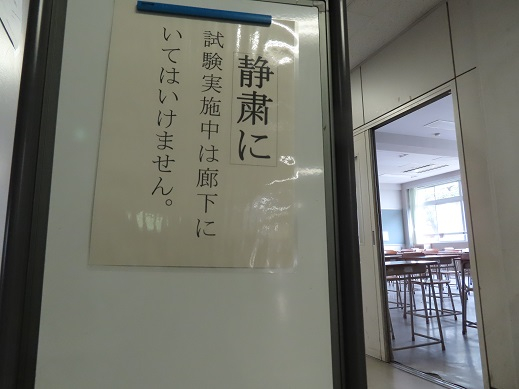 静粛に
試験実施中は廊下に
いてはいけません。